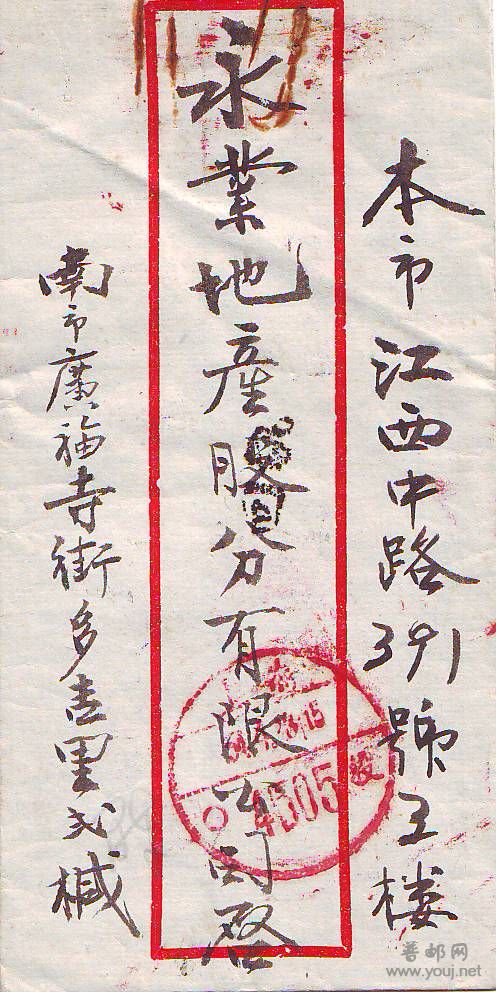 本市江西中路391號五楼
永業地產股份有限公司啓
南市廣福寺街多吉里弍械
4505
普邮网
www.youj.net